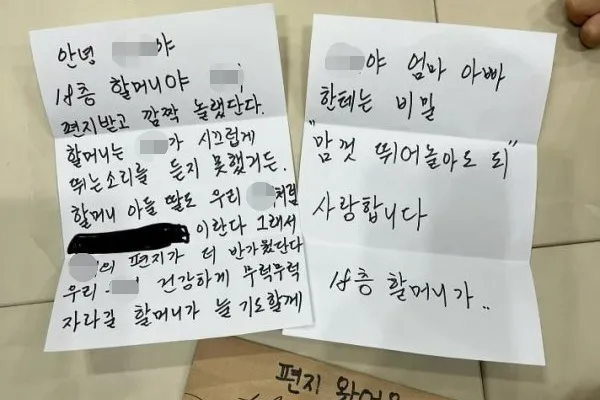 안녕 야
18층 할머니야
편지받고 깜짝 놀랬단다.
할머니는 가 시끄럽게
뛰는소리를 듣지 못했거든.
할머니 아들 딸도 우리 처럼
이란다 그래서
의 편지가 더 반가웠단다
우리 건강하게 무럭무럭
자라길 할머니가 늘 기도할께
야 엄마 아빠
한테는 비밀
"맘껏 뛰어놀아도 되"
사랑합니다
18층 할머니가..
편지 왔어요